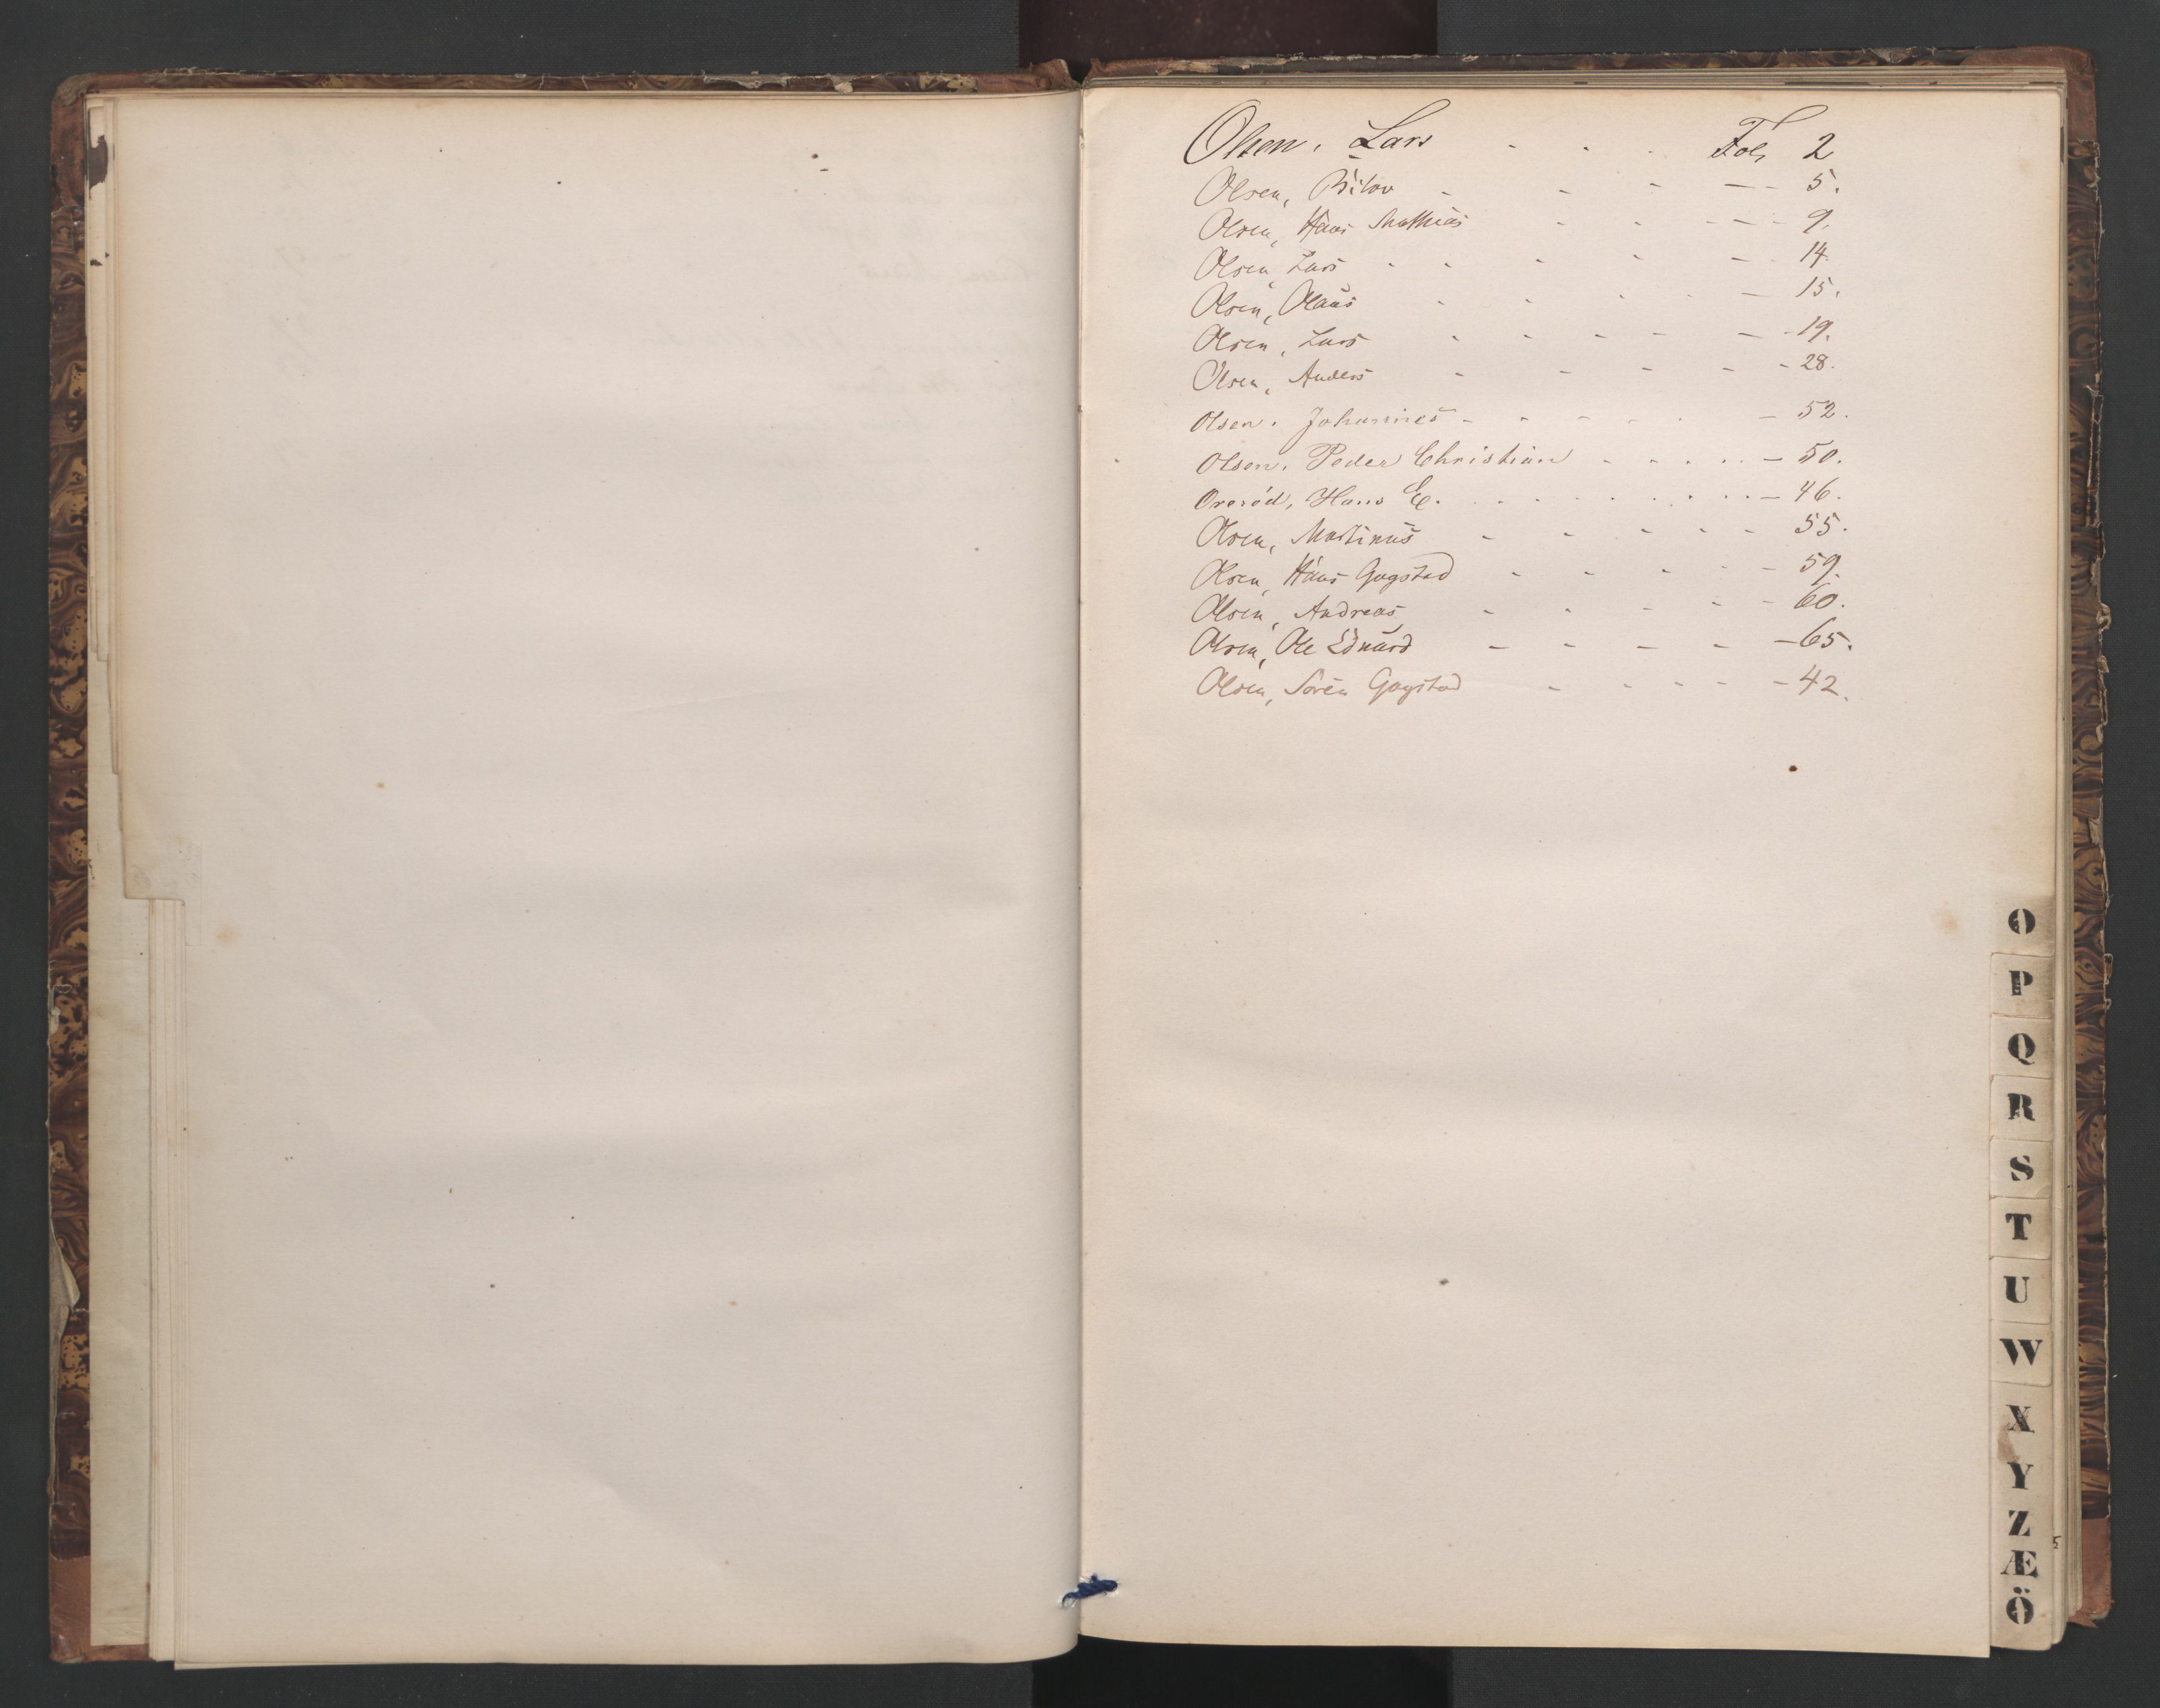 Olsen, Lars . . . Fol. 2
Olsen, - - - - 5.
Olsen, Hans Mathias - - - 9.
Olsen, Lars - - - - - 14.
Olsen, Olaus - - - - 15.
Olsen, Lars - - - - - 19.
Olsen, Anders - - - - - 28.
Olsen, Johannes - - - - 52.
Olsen, Peder Christian - - - - - 50.
Orerød, Hans E. . . . . . - 46.
Olsen, Martinus - - - - - 55.
Olsen, Hans Gogstad - - - - - 59.
Olsen, Andreas - - - - - 60.
Olsen, Ole Eduard - - - - - 65.
Olsen, Sören Gogstad - - - - - 42.
O
P
Q
R
S
T
U
W
X
Y
Z
Æ
Ö